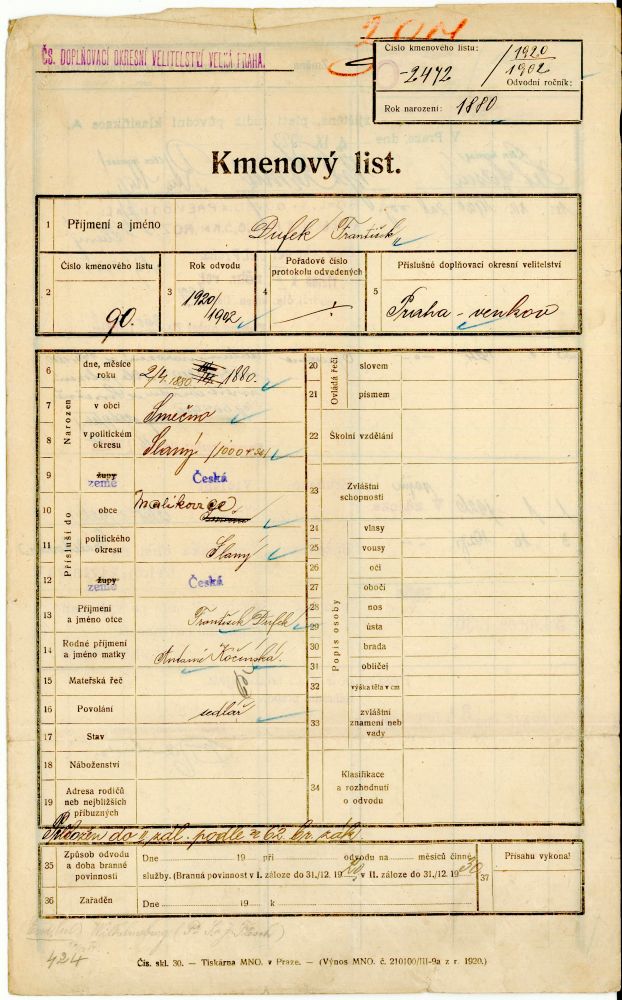 ČS. DOPLŇOVACÍ OKRESNÍ VELITELSTVÍ VELKÁ PRAHA.
Číslo kmenového listu:
2472 / 1920
1902
Odvodní ročník:
Rok narození: 1880
Kmenový list.
1 Příjmení a jméno Dufek František
Číslo kmenového listu Rok odvodu Pořadové číslo protokolu odvedených Příslušné doplňovací okresní velitelství
2 90. 3 1920/1902 4 5 Praha - venkov
6 dne, měsíce roku 2/4. 1880 1880.
Narozen
7 v obci Smečno
8 v politickém okresu Slaný
9 župy země Česká
Přísluší do
10 obce Malíkovice
11 politického okresu Slaný
12 župy země Česká
13 Příjmení a jméno otce František Dufek
14 Rodné příjmení a jméno matky
15 Mateřská řeč
16 Povolání sedlář
17 Stav
18 Náboženství
19 Adresa rodičů neb nejbližších příbuzných
Ovládá řeči
20 slovem
21 písmem
22 Školní vzdělání
23 Zvláštní schopnosti
Popis osoby
24 vlasy
25 vousy
26 oči
27 obočí
28 nos
29 ústa
30 brada
31 obličej
32 výška těla v cm
33 zvláštní znamení neb vady
34 Klasifikace a rozhodnutí o odvodu
do II. zál. podle § 62. br. zák.
35 Způsob odvodu a doba branné povinnosti Dne 19 při odvodu na měsíců činné
služby. (Branná povinnost v I. záloze do 31./12. 1920, v II. záloze do 31./12. 1930
37 Přísahu vykonal
36 Zařaděn Dne 19 k
424
Čís. skl. 30. — Tiskárna MNO. v Praze. — (Výnos MNO. č. 210100/III-9a z r. 1920.)